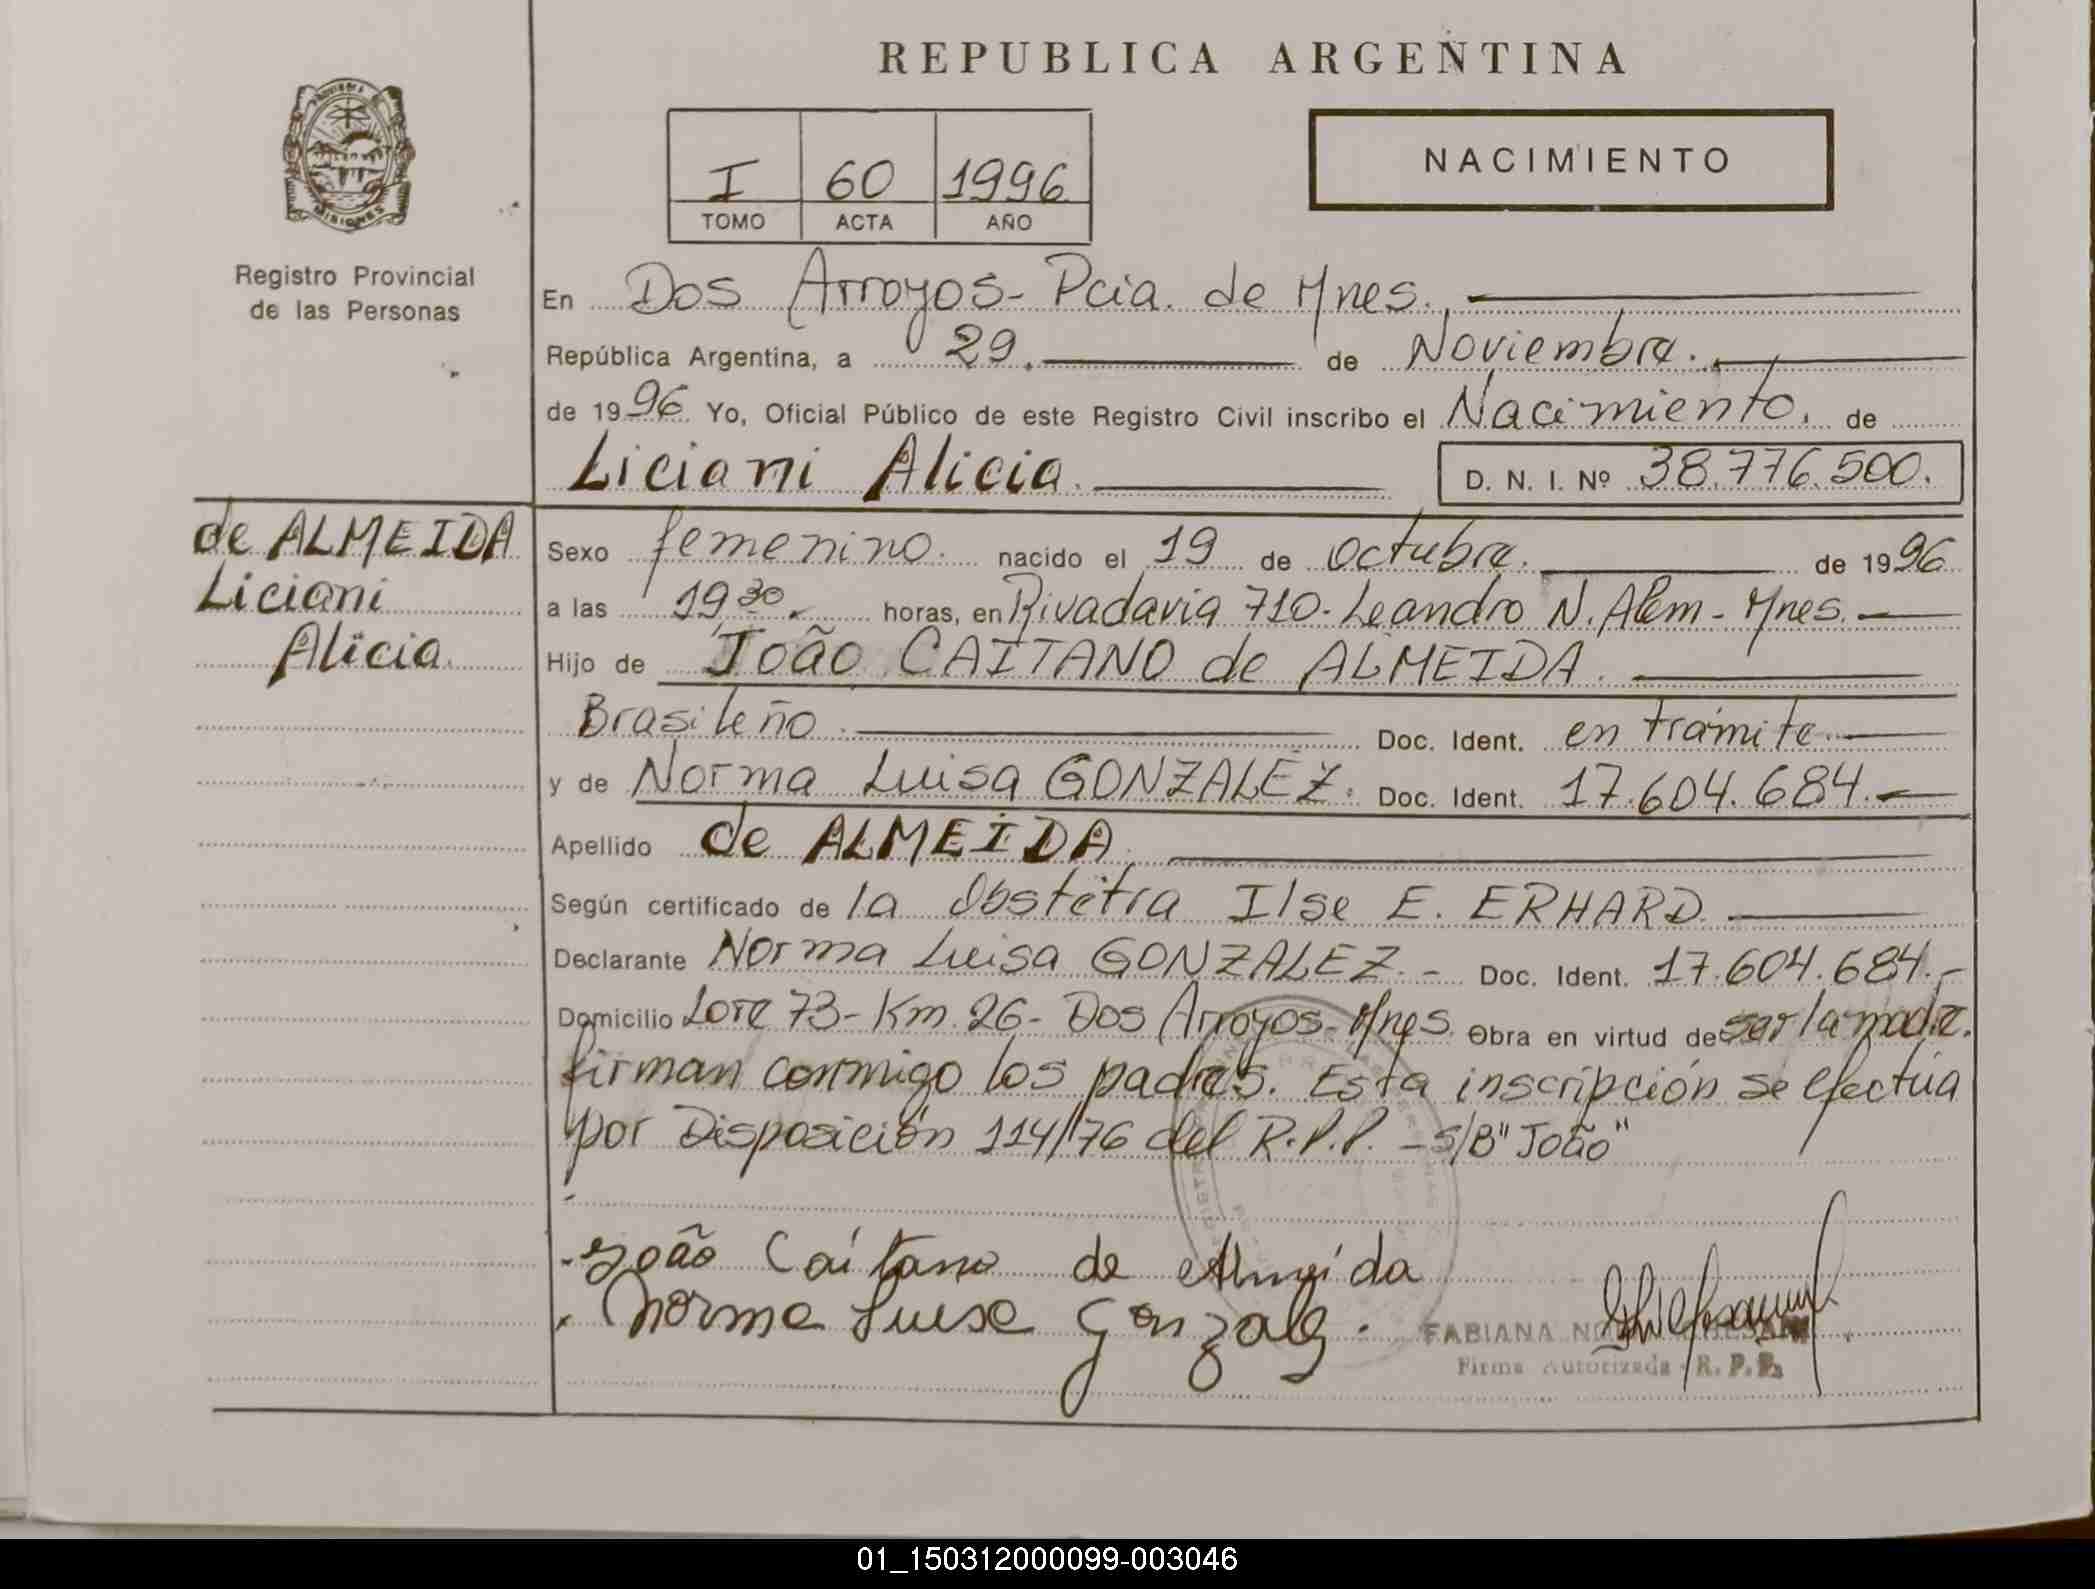 REPUBLICA ARGENTINA
PROVINCIA
MISIONES
Registro Provincial
de las Personas
I 60 1996
TOMO ACTA AÑO
NACIMIENTO
En Dos Arroyos - Pcia. de Mnes.
República Argentina, a 29. de Noviembre.
de 1996 Yo, Oficial Público de este Registro Civil inscribo el Nacimiento. de
Liciani Alicia. D. N. I. Nº 38.776.500.
de ALMEIDA
Liciani
Alicia.
Sexo femenino. nacido el 19 de Octubre. de 1996
a las 19,30. horas, en Rivadavia 710- Leandro N. Alem - Mnes.
Hijo de João CAITANO de ALMEIDA.
Brasileño Doc. Ident. en trámite.
y de Norma Luisa GONZALEZ. Doc. Ident. 17.604.684.
Apellido de ALMEIDA
Según certificado de la Obstétra Ilse E. ERHARD.
Declarante Norma Luisa GONZALEZ. - Doc. Ident. 17.604.684.-
Domicilio Lote 73 - Km. 26 - Dos Arroyos - Mnes. Obra en virtud de ser la madre.
firman conmigo los padres. Esta inscripción se efectúa
por Disposición 114/76 del R.P.P. - S/B "João"
João Caitano de Almeida
Norma Luisa Gonzalez.
FABIANA
Firma Autorizada - R. P. P.
01_150312000099-003046